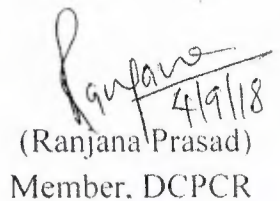 Ranjana
4/9/18
(Ranjana Prasad)
Member, DCPCR